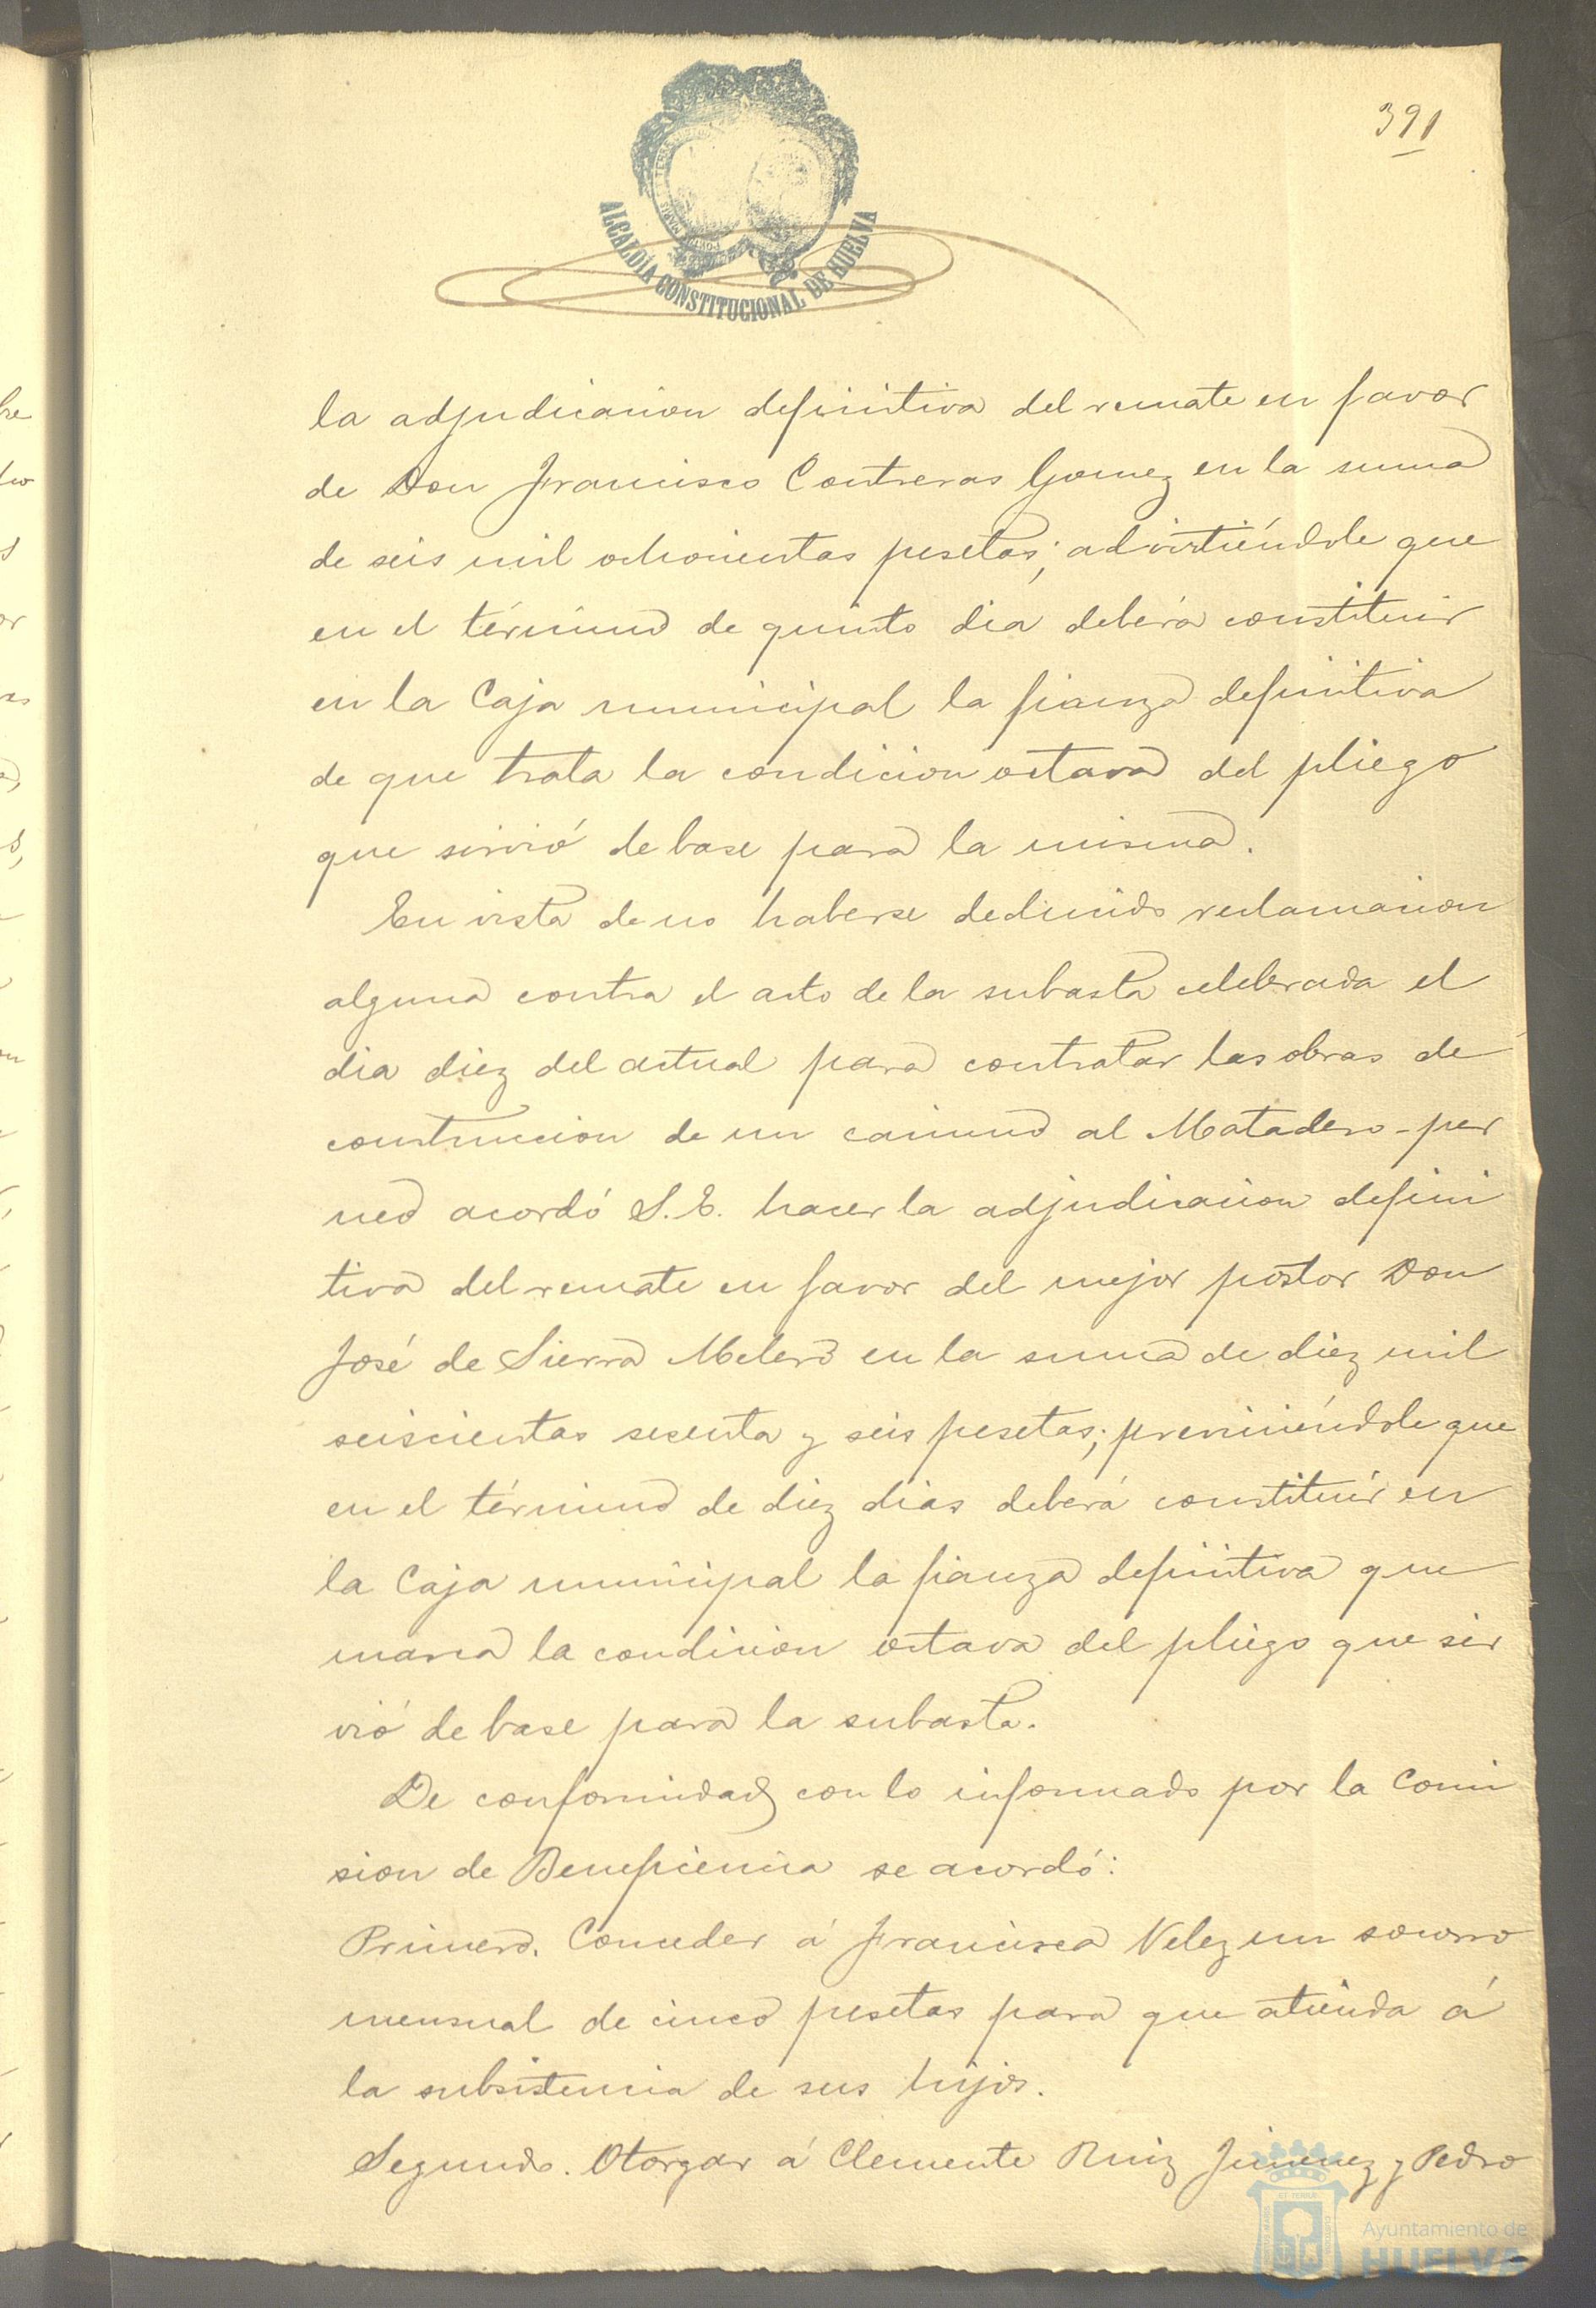 391
ALCALDÍA CONSTITUCIONAL DE HUELVA
la adjudicacion definitiva del remate en favor
de Don Francisco Contreras Gomez en la suma
de seis mil ochocientas pesetas; advirtiéndole que
en el término de quinto dia deberá constituir
en la Caja municipal la fianza definitiva
de que trata la condicion octava del pliego
que sirvió de base para la misma.
En vista de no haberse deducido reclamacion
alguna contra el acto de la subasta celebrada el
dia diez del actual para contratar las obras de
construccion de un camino al Matadero-per
neo acordó S.E. hacer la adjudicacion defini
tiva del remate en favor del mejor postor Don
José de Sierra Melero en la suma de diez mil
seiscientas sesenta y seis pesetas; previniéndole que
en el término de diez dias deberá constituir en
la Caja municipal la fianza definitiva que
marca la condicion octava del pliego que sir
vió de base para la subasta.
De conformidad con lo informado por la Comi
sion de Beneficencia se acordó:
Primero. Conceder á Francisca Velez un socorro
mensual de cinco pesetas para que atienda á
la subsistencia de sus hijos.
Segundo. Otorgar á Clemente Ruiz Jimenez y Pedro
Ayuntamiento de
HUELVA